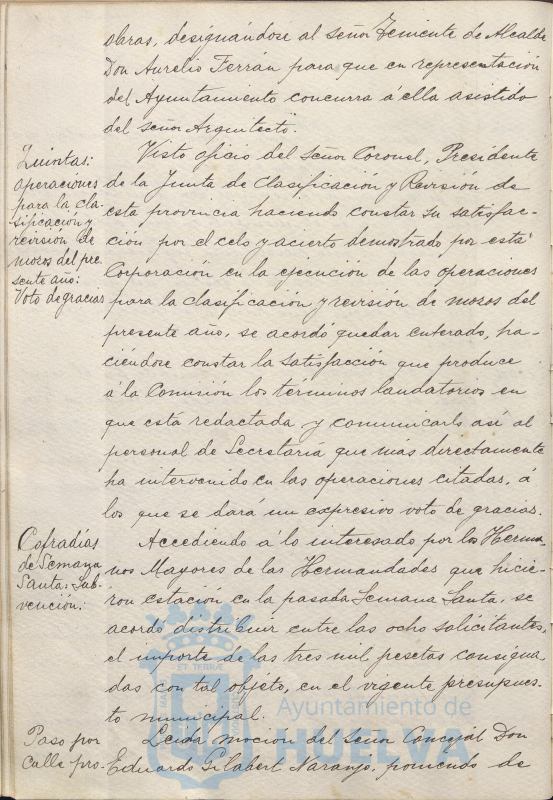 obras, designándose al señor Teniente de Alcalde
Don Aurelio Ferrán para que en representación
del Ayuntamiento concurra á ella asistido
del señor Arquitecto.
Quintas:
operaciones
para la cla-
sificación y
revisión de
mozos del pre-
sente año:
Voto de gracias
Visto oficio del señor Coronel, Presidente
de la Junta de Clasificación y Revisión de
esta provincia haciendo constar su satisfac-
ción por el celo y acierto demostrado por esta
Corporación en la ejecución de las operaciones
para la clasificación y revisión de mozos del
presente año, se acordó quedar enterado, ha-
ciéndose constar la satisfacción que produce
á la Comisión los términos laudatorios en
que está redactada y comunicarlo así al
personal de Secretaría que más directamente
ha intervenido en las operaciones citadas, á
los que se dará un expresivo voto de gracias.
Cofradías
de Semana
Santa: Sub-
vención:
Accediendo á lo interesado por los Herma-
nos Mayores de las Hermandades que hicie-
ron estación en la pasada Semana Santa, se
acordó distribuir entre las ocho solicitantes,
el importe de las tres mil pesetas consigna-
das con tal objeto, en el vigente presupues-
to municipal.
Paso por
calle pro-
Leida moción del señor Concejal Don
Eduardo Gilabert Naranjo, poniendo de
Ayuntamiento de
HUELVA